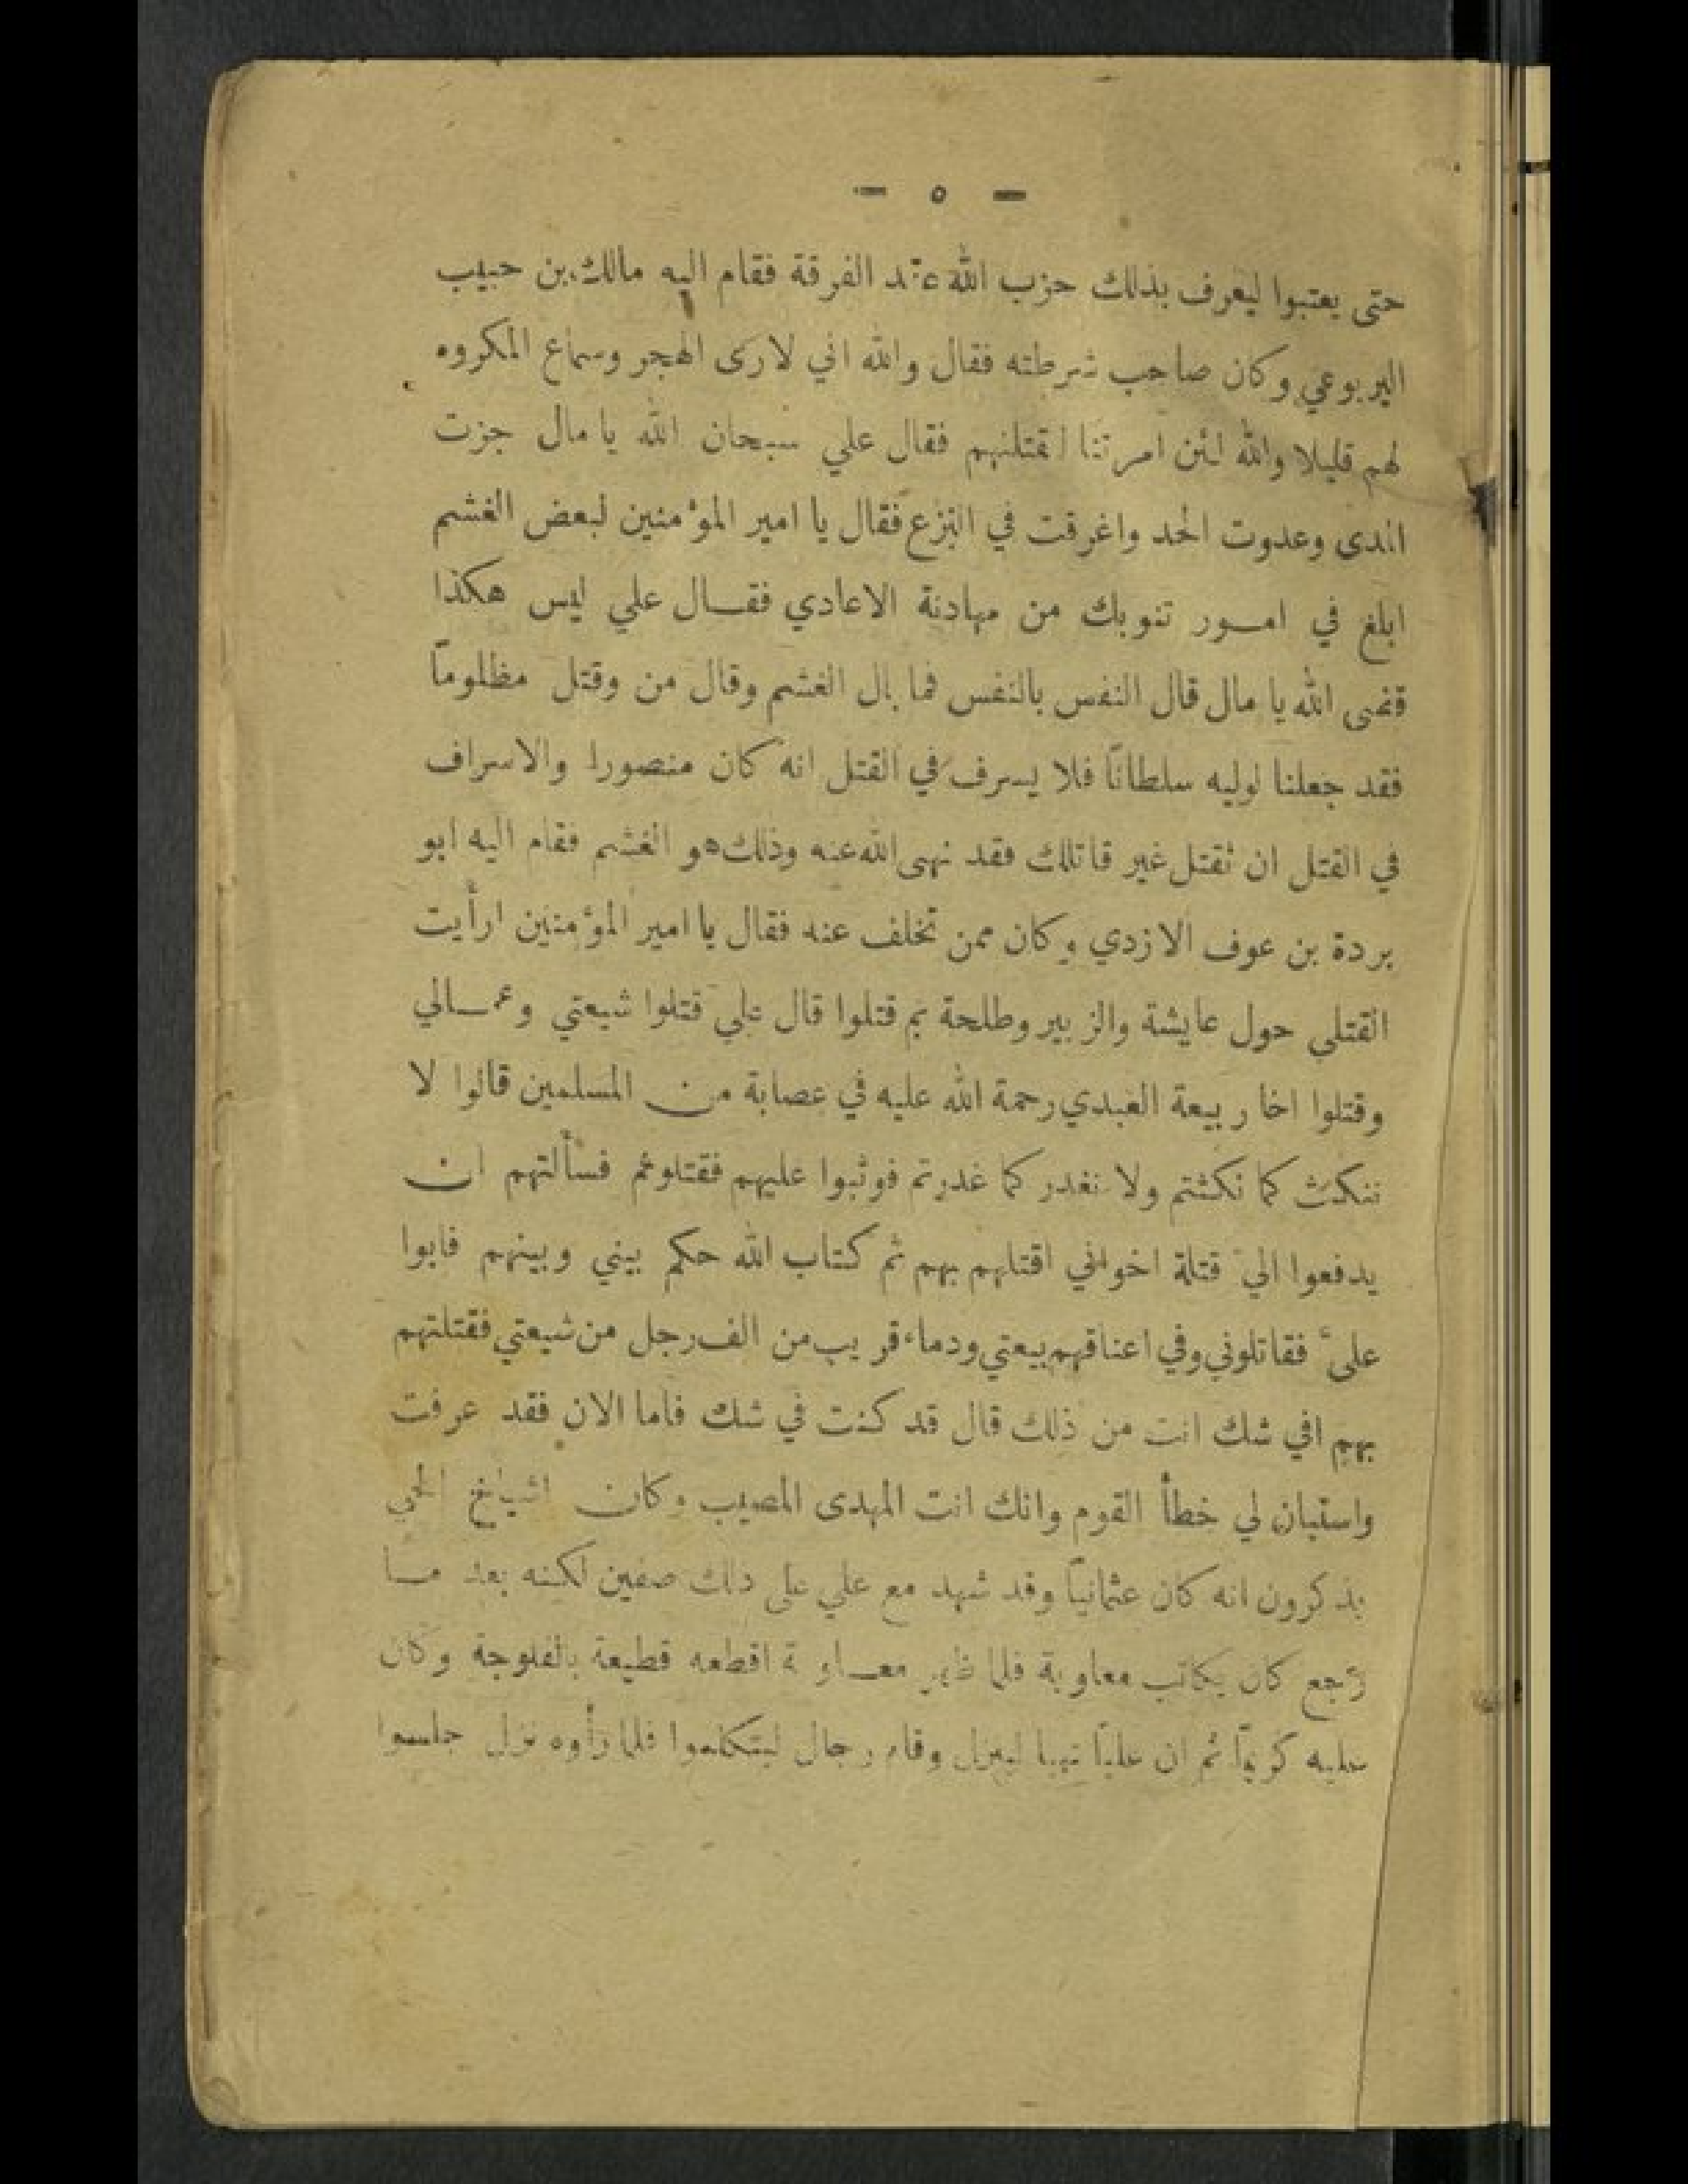 - ٥ -
حتى يعتبوا ليعرف بذلك حزب الله عند الفرقة فقام اليه مالك بن حبيب
اليربوعي وكان صاحب شرطته فقال والله اني لارى الهجر وسماع المكروه
لهم قليلا والله لئن امرتنا لنقتلنهم فقال علي سبحان الله يا مال جزت
المدى وعدوت الحد واغرقت في النزع فقال يا امير المؤمنين لبعض الغشم
ابلغ في امور تنوبك من مهادنة الاعادي فقال علي ليس هكذا
قضى الله يا مال قال النفس بالنفس فما بال الغشم وقال من وقتل مظلوماً
فقد جعلنا لوليه سلطاناً فلا يسرف في القتل انه كان منصورا والاسراف
في القتل ان تقتل غير قاتلك فقد نهى الله عنه وذلك هو الغشم فقام اليه ابو
بردة بن عوف الازدي وكان ممن تخلف عنه فقال يا امير المؤمنين ارأيت
القتلى حول عايشة والزبير وطلحة بم قتلوا قال علي قتلوا شيعتي وعمالي
وقتلوا اخا ربيعة العبدي رحمة الله عليه في عصابة من المسلمين قالوا لا
ننكث كما نكثتم ولا نغدر كما غدرتم فوثبوا عليهم فقتلوهم فسألتهم ان
يدفعوا اليّ قتلة اخواني اقتلهم بهم ثم كتاب الله حكم بيني وبينهم فابوا
علىّ فقاتلوني وفي اعناقهم بيعتي ودماء قريب من الف رجل من شيعتي فقتلتهم
بهم افي شك انت من ذلك قال قد كنت في شك فاما الان فقد عرفت
واستبان لي خطأ القوم وانك انت المهدى المصيب وكان اشياخ الحي
يذكرون انه كان عثمانياً وقد شهد مع علي على ذلك صفين لكنه بعد ما
رجع كان يكاتب معاوية فلما ظهر معاوية اقطعه قطيعة بالفلوجة وكان
عليه كريماً ثم ان علياً تهيا لينزل وقام رجال ليتكلموا فلما رأوه نزل جلسوا